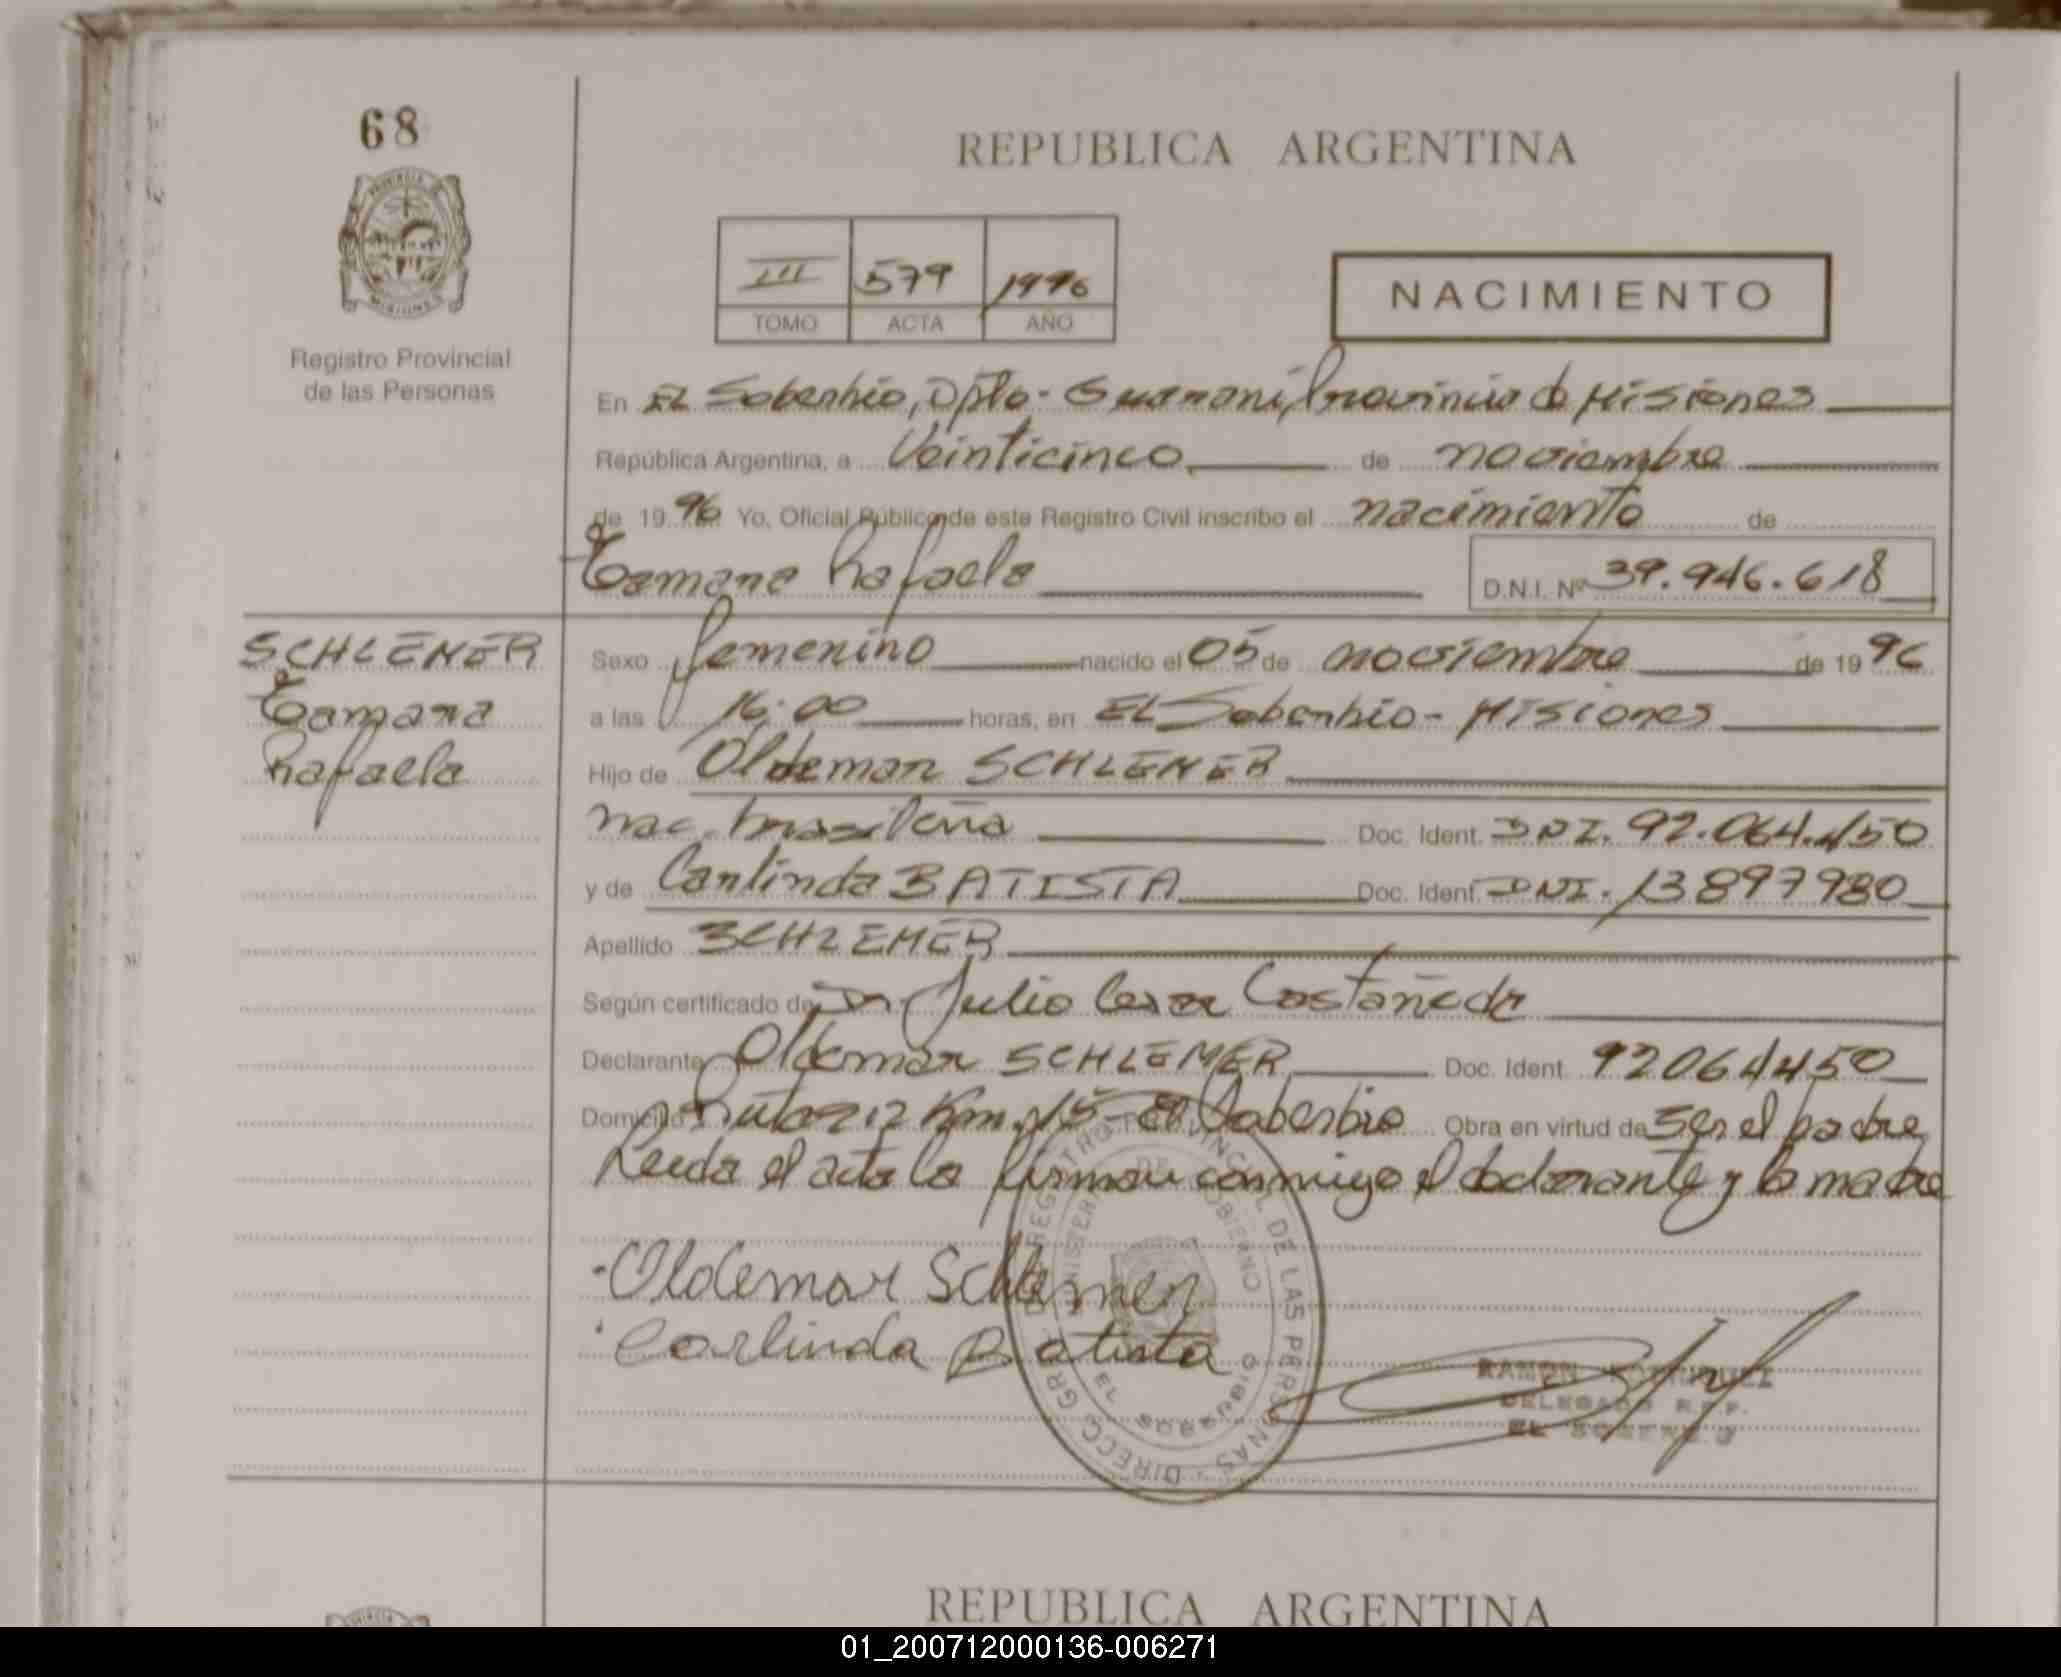 68
REPUBLICA ARGENTINA
III 579 1996
TOMO ACTA AÑO
NACIMIENTO
Registro Provincial
de las Personas
En EL Soberbio, Dpto- Guarani, Provincia de Misiones
República Argentina, a Veinticinco de noviembre
de 1996 Yo, Oficial Público de este Registro Civil inscribo el nacimiento de
Tamara Rafaela D.N.I. Nº 39.946.618
SCHLEMER
Tamara
Rafaela
Sexo femenino nacido el 05 de noviembre de 1996
a las 16:00 horas, en EL Soberbio - Misiones
Hijo de Oldemar SCHLEMER
nac. brasileña Doc. Ident. DNI. 92.064.450
y de Carlinda BATISTA Doc. Ident. DNI. 13897980
Apellido SCHLEMER
Según certificado de Dr. Julio Cesar Castañeda
Declarante Oldemar SCHLEMER Doc. Ident. 92064450
Domicilio Ruta Km. El Soberbio Obra en virtud de Ser el padre
Leida el acta la firman conmigo el declarante y la madre
Oldemar Schlemer
Carlinda Batista
DIRECC. GRAL. DE REGISTRO PROVINCIAL DE LAS PERSONAS
MINISTERIO DE GOBIERNO
EL SOBERBIO
RAMON RODRIGUEZ
DELEGADO R.P.P.
EL SOBERBIO
REPUBLICA ARGENTINA
01_200712000136-006271